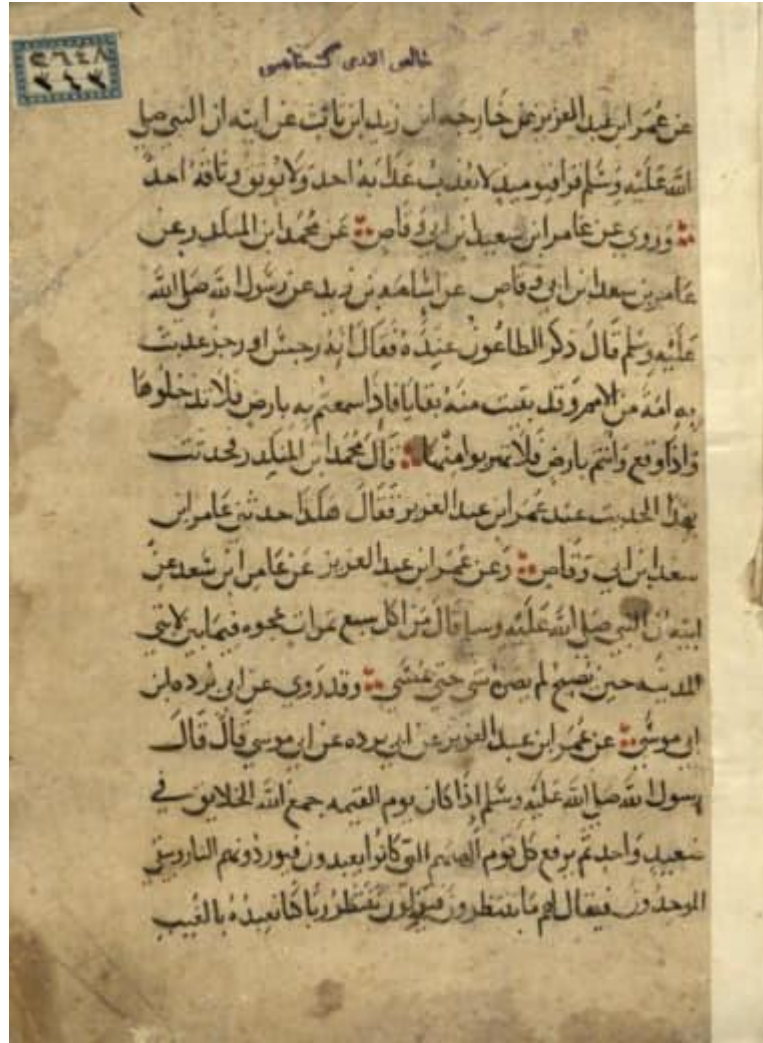 خالص الادى
٥٦٤٨
٣١٣
عن عُمَر ابن عبد العزيز عن خارجه ابن زيد ابن ثابت عن ابيه ان النبي صلى
الله عَلَيْه وَسَلم قرا فيوميذ لا يعذب عذابه احد وَلا يوثق وثاقه احد
وَروي عن عامر ابن سعيد ابن ابي وقاص عَن محُمد ابن المنكدر عن
عَامر بن سعد ابن ابي وقاص عن اسَامه بن زيد عن رسُول الله صَلى الله
عَليْه وسَلم قالَ ذكر الطاعُون عنِدهُ فقالَ انه رجسٌ او رجز عذبت
به امُة من الامم وَقد بقيت منهُ بقايا فاذَا سمعتم به بارض فلا تدخلُوهَا
وَاذا وقع وَانتم بارض فلا تهربوا منها قالَ محُمد ابن المنكدر فحدثت
بهذا الحديث عند عُمَر ابن عبد العزيز فقالَ هكذا حدثني عَامر ابن
سعد ابن ابي وَقاص وَعن عُمَر ابن عبد العزيز عَنْ عَامر ابن سَعد عن
ابيه ان النبي صلى الله عَلَيْه وسلم قالَ مَن اكل سبع تمرات عجوه فيما بين لابتي
المدينه حين يُصبح لم يضره شي حتي يمُسي وقد رَوي عن ابي بُرده ابن
ابي مُوسي عن عُمَر ابن عبد العزيز عن ابي بُرده عن ابي موسي قالَ قالَ
رسول الله صلى الله عَلَيْه وسَلم اذَا كان يوم القيمه جمع الله الخلايق في
صعيد وَاحد ثم يرفع لكل قوم الهتهم التي كانُوا يعبدون فيوردُونهم النار ويبقي
الموحدُون فيقال لهم مَا تنتظرون فيقولون ننتظر ربا كنا نعبدُهُ بالغيب